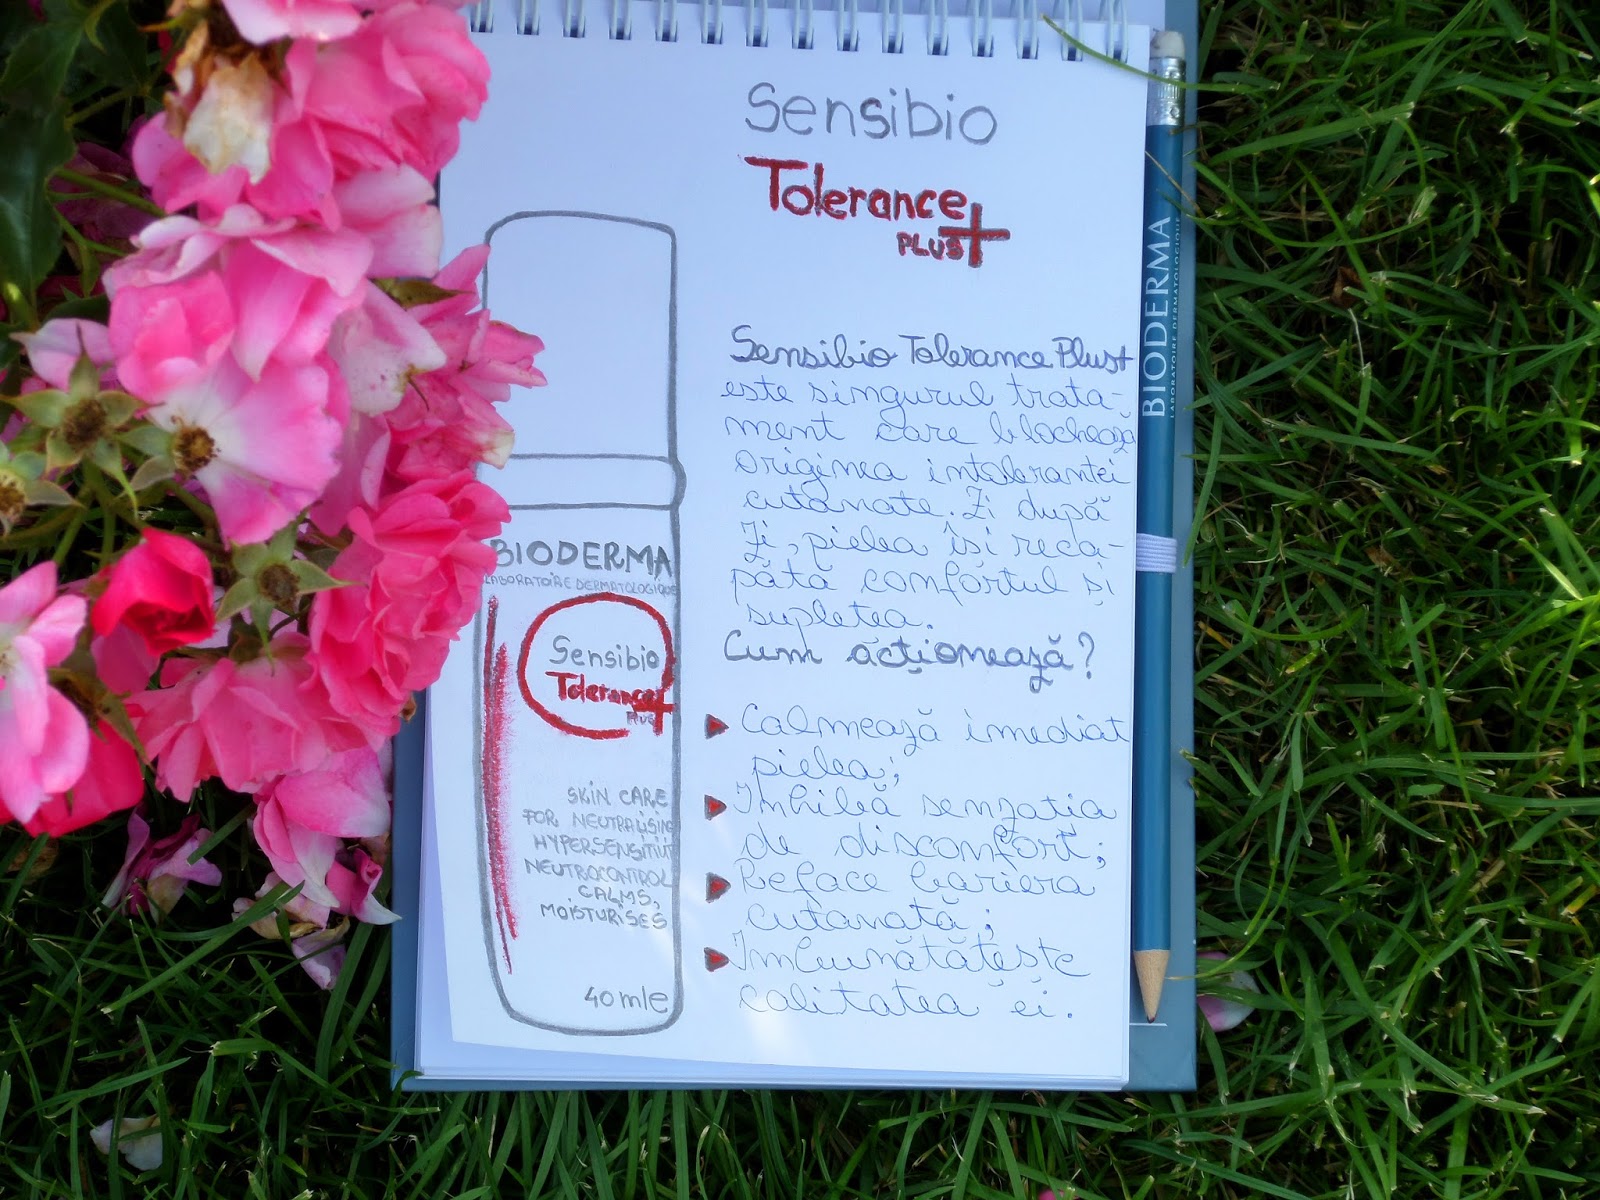 Sensibio
Tolerance
PLUS+
Sensibio Tolerance Plus+
este singurul trata-
ment care blochează
originea intoleranței
cutanate. Zi după
zi, pielea își reca-
pătă confortul și
supletea.
Cum acționează?
Calmează imediat
pielea;
Inhibă senzația
de disconfort;
Reface bariera
cutanată;
Îmbunătățește
calitatea ei.
BIODERMA
LABORATOIRE DERMATOLOGIQUE
Sensibio
Tolerance+
PLUS
SKIN CARE
FOR NEUTRALISING
HYPERSENSITIVIT
NEUTROCONTROL
CALMS,
MOISTURISES
40 mle
BIODERMA
LABORATOIRE DERMATOLOGIQUE